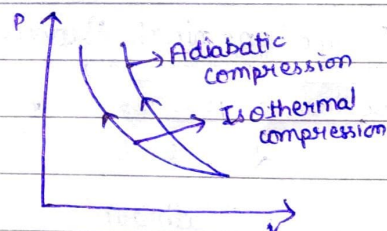 P
Adiabatic
compression
Isothermal
compression
V